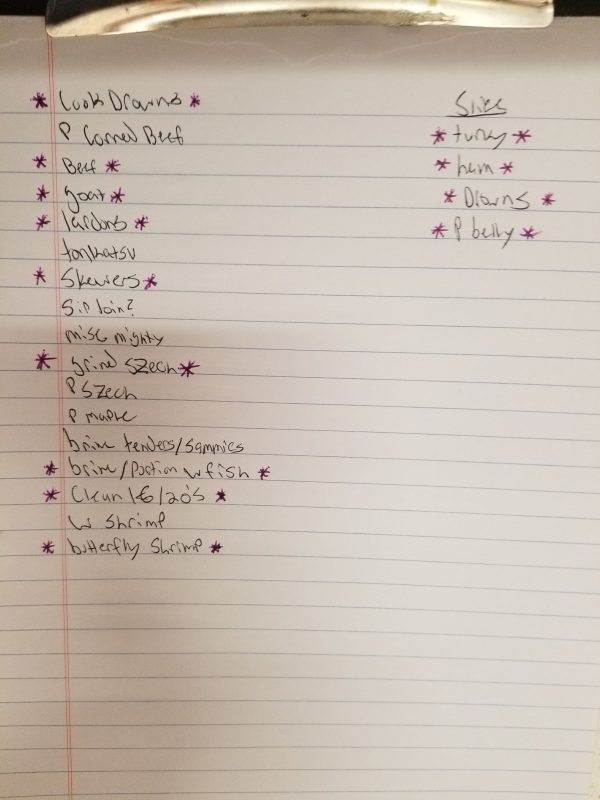 * Cook Drowns *
P Corned Beef
* Beef *
* goat *
* lardons *
tonkatsu
* Skewers *
Sirloin?
misc mighty
* grind szech *
P Szech
P maple
brine tenders/sammies
* brine/Portion w fish *
* Clean 16/20's *
W Shrimp
* butterfly Shrimp *
Slice
* turky *
* ham *
* Drowns *
* P belly *